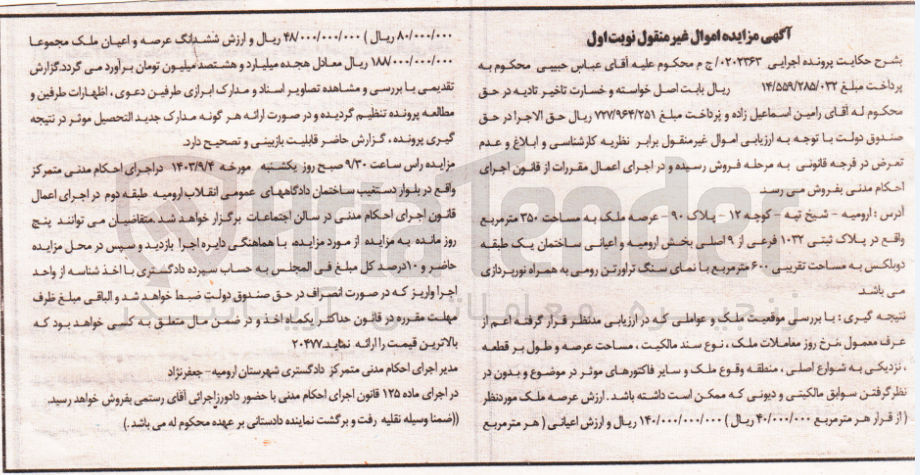 آگهی مزایده اموال غیر منقول نوبت اول
بشرح حکایت پرونده اجرایی ۰۲۰۲۳۶۳/ ج م محکوم علیه آقای عباس حبیبی محکوم به
پرداخت مبلغ ۱۴/۵۵۹/۲۸۵/۰۳۲ ریال بابت اصل خواسته و خسارت تاخیر تادیه در حق
محکوم له آقای رامین اسماعیل زاده و پرداخت مبلغ ۷۲۷/۹۶۴/۲۵۱ ریال حق الاجرا در حق
صندوق دولت با توجه به ارزیابی اموال غیرمنقول برابر نظریه کارشناسی و ابلاغ و عدم
تعرض در فرجه قانونی به مرحله فروش رسیده و در اجرای اعمال مقررات از قانون اجرای
احکام مدنی بفروش می رسد
آدرس : ارومیه - شیخ تپه - کوچه ۱۲ - پلاک ۹۰ - عرصه ملک به مساحت ۳۵۰ مترمربع
واقع در پلاک ثبتی ۱۰۳۲ فرعی از ۹ اصلی بخش ارومیه و اعیانی ساختمان یک طبقه
دوبلکس به مساحت تقریبی ۶۰۰ مترمربع با نمای سنگ تراورتن رومی به همراه نورپردازی
می باشد
نتیجه گیری : با بررسی موقعیت ملک و عواملی که در ارزیابی مدنظر قرار گرفته اعم از
عرف معمول نرخ روز معاملات ملک ، نوع سند مالکیت ، مساحت عرصه و طول بر قطعه
، نزدیکی به شوارع اصلی ، منطقه وقوع ملک و سایر فاکتورهای موثر در موضوع و بدون در
نظر گرفتن سوابق مالکیتی و دیونی که ممکن است داشته باشد . ارزش عرصه ملک موردنظر
( از قرار هر مترمربع ۴۰۰/۰۰۰/۰۰۰ ریال ) ۱۴۰/۰۰۰/۰۰۰/۰۰۰ ریال و ارزش اعیانی ( هر مترمربع
۸۰/۰۰۰/۰۰۰ ریال ) ۴۸/۰۰۰/۰۰۰/۰۰۰ ریال و ارزش ششدانگ عرصه و اعیان ملک مجموعا
۱۸۸/۰۰۰/۰۰۰/۰۰۰ ریال معادل هجده میلیارد و هشتصد میلیون تومان برآورد می گردد.گزارش
تقدیمی با بررسی و مشاهده تصاویر اسناد و مدارک ابرازی طرفین دعوی ، اظهارات طرفین و
مطالعه پرونده تنظیم گردیده و در صورت ارائه هر گونه مدارک جدید التحصیل موثر در نتیجه
گیری پرونده ، گزارش حاضر قابلیت بازبینی و تصحیح دارد.
مزایده راس ساعت ۹/۳۰ صبح روز یکشنبه مورخه ۱۴۰۳/۹/۴ دراجرای احکام مدنی متمرکز
واقع در بلوار دستغیب ساختمان دادگاههای عمومی انقلاب ارومیه طبقه دوم در اجرای اعمال
قانون اجرای احکام مدنی در سالن اجتماعات برگزار خواهد شد متقاضیان می توانند پنج
روز مانده به مزایده از مورد مزایده با هماهنگی دایره اجرا بازدید و سپس در محل مزایده
حاضر و ۱۰درصد کل مبلغ فی المجلس به حساب سپرده دادگستری با اخذ شناسه از واحد
اجرا واریز که در صورت انصراف در حق صندوق دولت ضبط خواهد شد و الباقی مبلغ ظرف
مهلت مقرره در قانون حداکثر یکماه اخذ و در ضمن مال متعلق به کسی خواهد بود که
بالاترین قیمت را ارائه نماید ۲۰۴۷۷
مدیر اجرای احکام مدنی متمرکز دادگستری شهرستان ارومیه - جعفرنژاد
در اجرای ماده ۱۲۵ قانون اجرای احکام مدنی با حضور دادورزاجرائی آقای رستمی بفروش خواهد رسید.
((ضمنا وسیله نقلیه رفت و برگشت نماینده دادستانی بر عهده محکوم له می باشد .)
AriaTender
زنجیره معاملاتی آریا